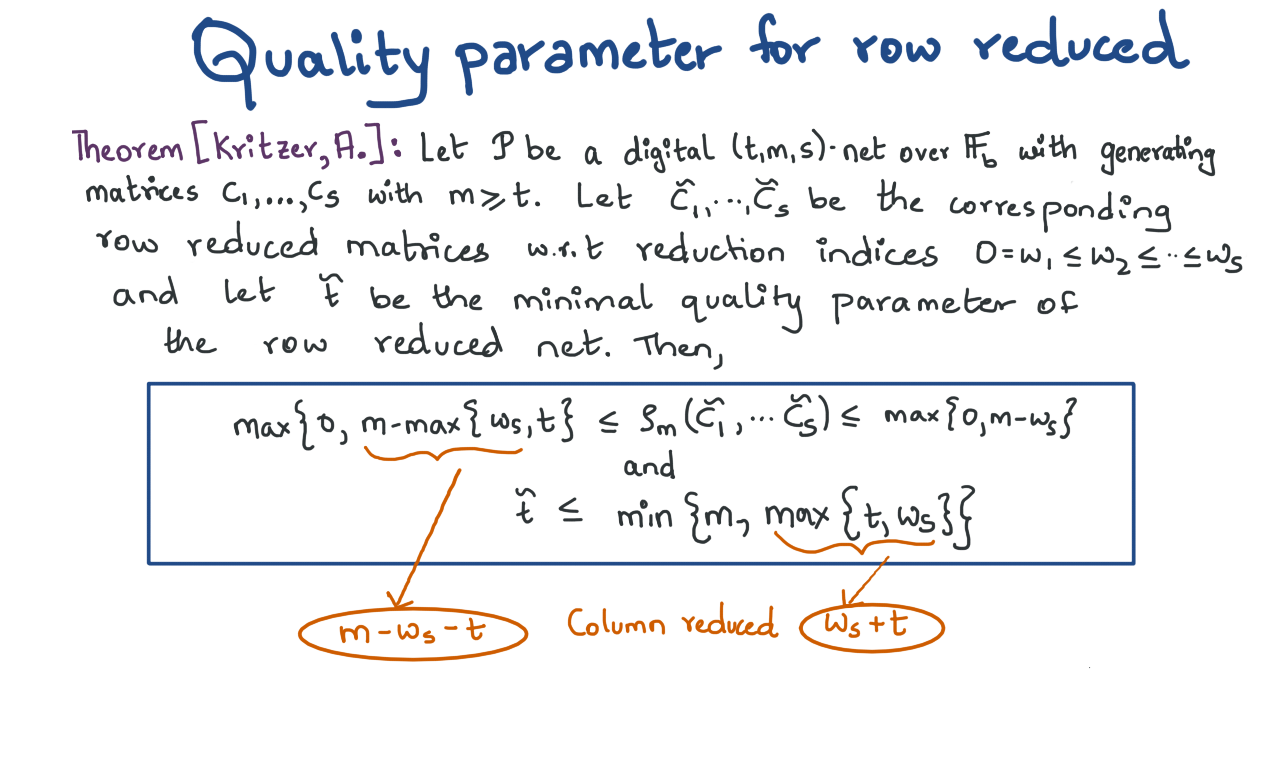 Quality parameter for row reduced
Theorem [Kritzer, A.]: Let P be a digital (t,m,s)-net over 𝔽_b with generating
matrices C₁,...,Cs with m ⩾ t. Let C̃₁,...,C̃s be the corresponding
row reduced matrices w.r.t reduction indices 0=w₁ ≤ w₂ ≤ ... ≤ ws
and let t̃ be the minimal quality parameter of
the row reduced net. Then,
max{0, m-max{ws,t} ≤ ρm(C̃₁,...C̃s) ≤ max{0,m-ws}
and
t̃ ≤ min{m, max{t,ws}}
m-ws-t Column reduced ws+t